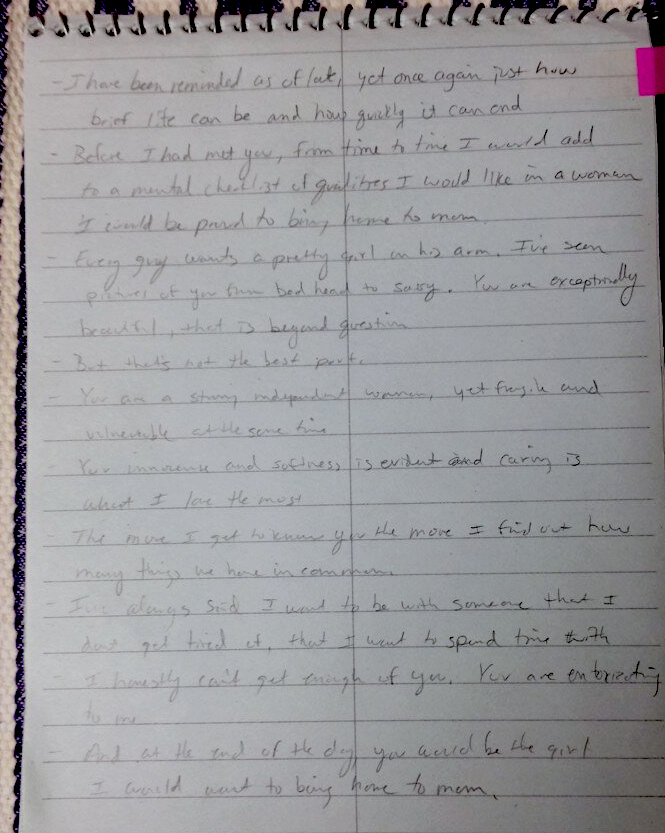 - I have been reminded as of late, yet once again just how
brief life can be and how quickly it can end
- Before I had met you, from time to time I would add
to a mental checklist of qualities I would like in a woman
I would be proud to bring home to mom.
- Every guy wants a pretty girl on his arm. I've seen
pictures of you from bed head to sassy. You are exceptionally
beautiful, that is beyond question
- But that's not the best part.
- You are a strong independent woman, yet fragile and
vulnerable at the same time
- Your innocence and softness is evident and caring is
what I love the most
- The more I get to know you the more I find out how
many things we have in common.
- I've always said I want to be with someone that I
dont get tired of, that I want to spend time with
- I honestly can't get enough of you. You are intoxicating
to me
- And at the end of the day you would be the girl
I would want to bring home to mom.